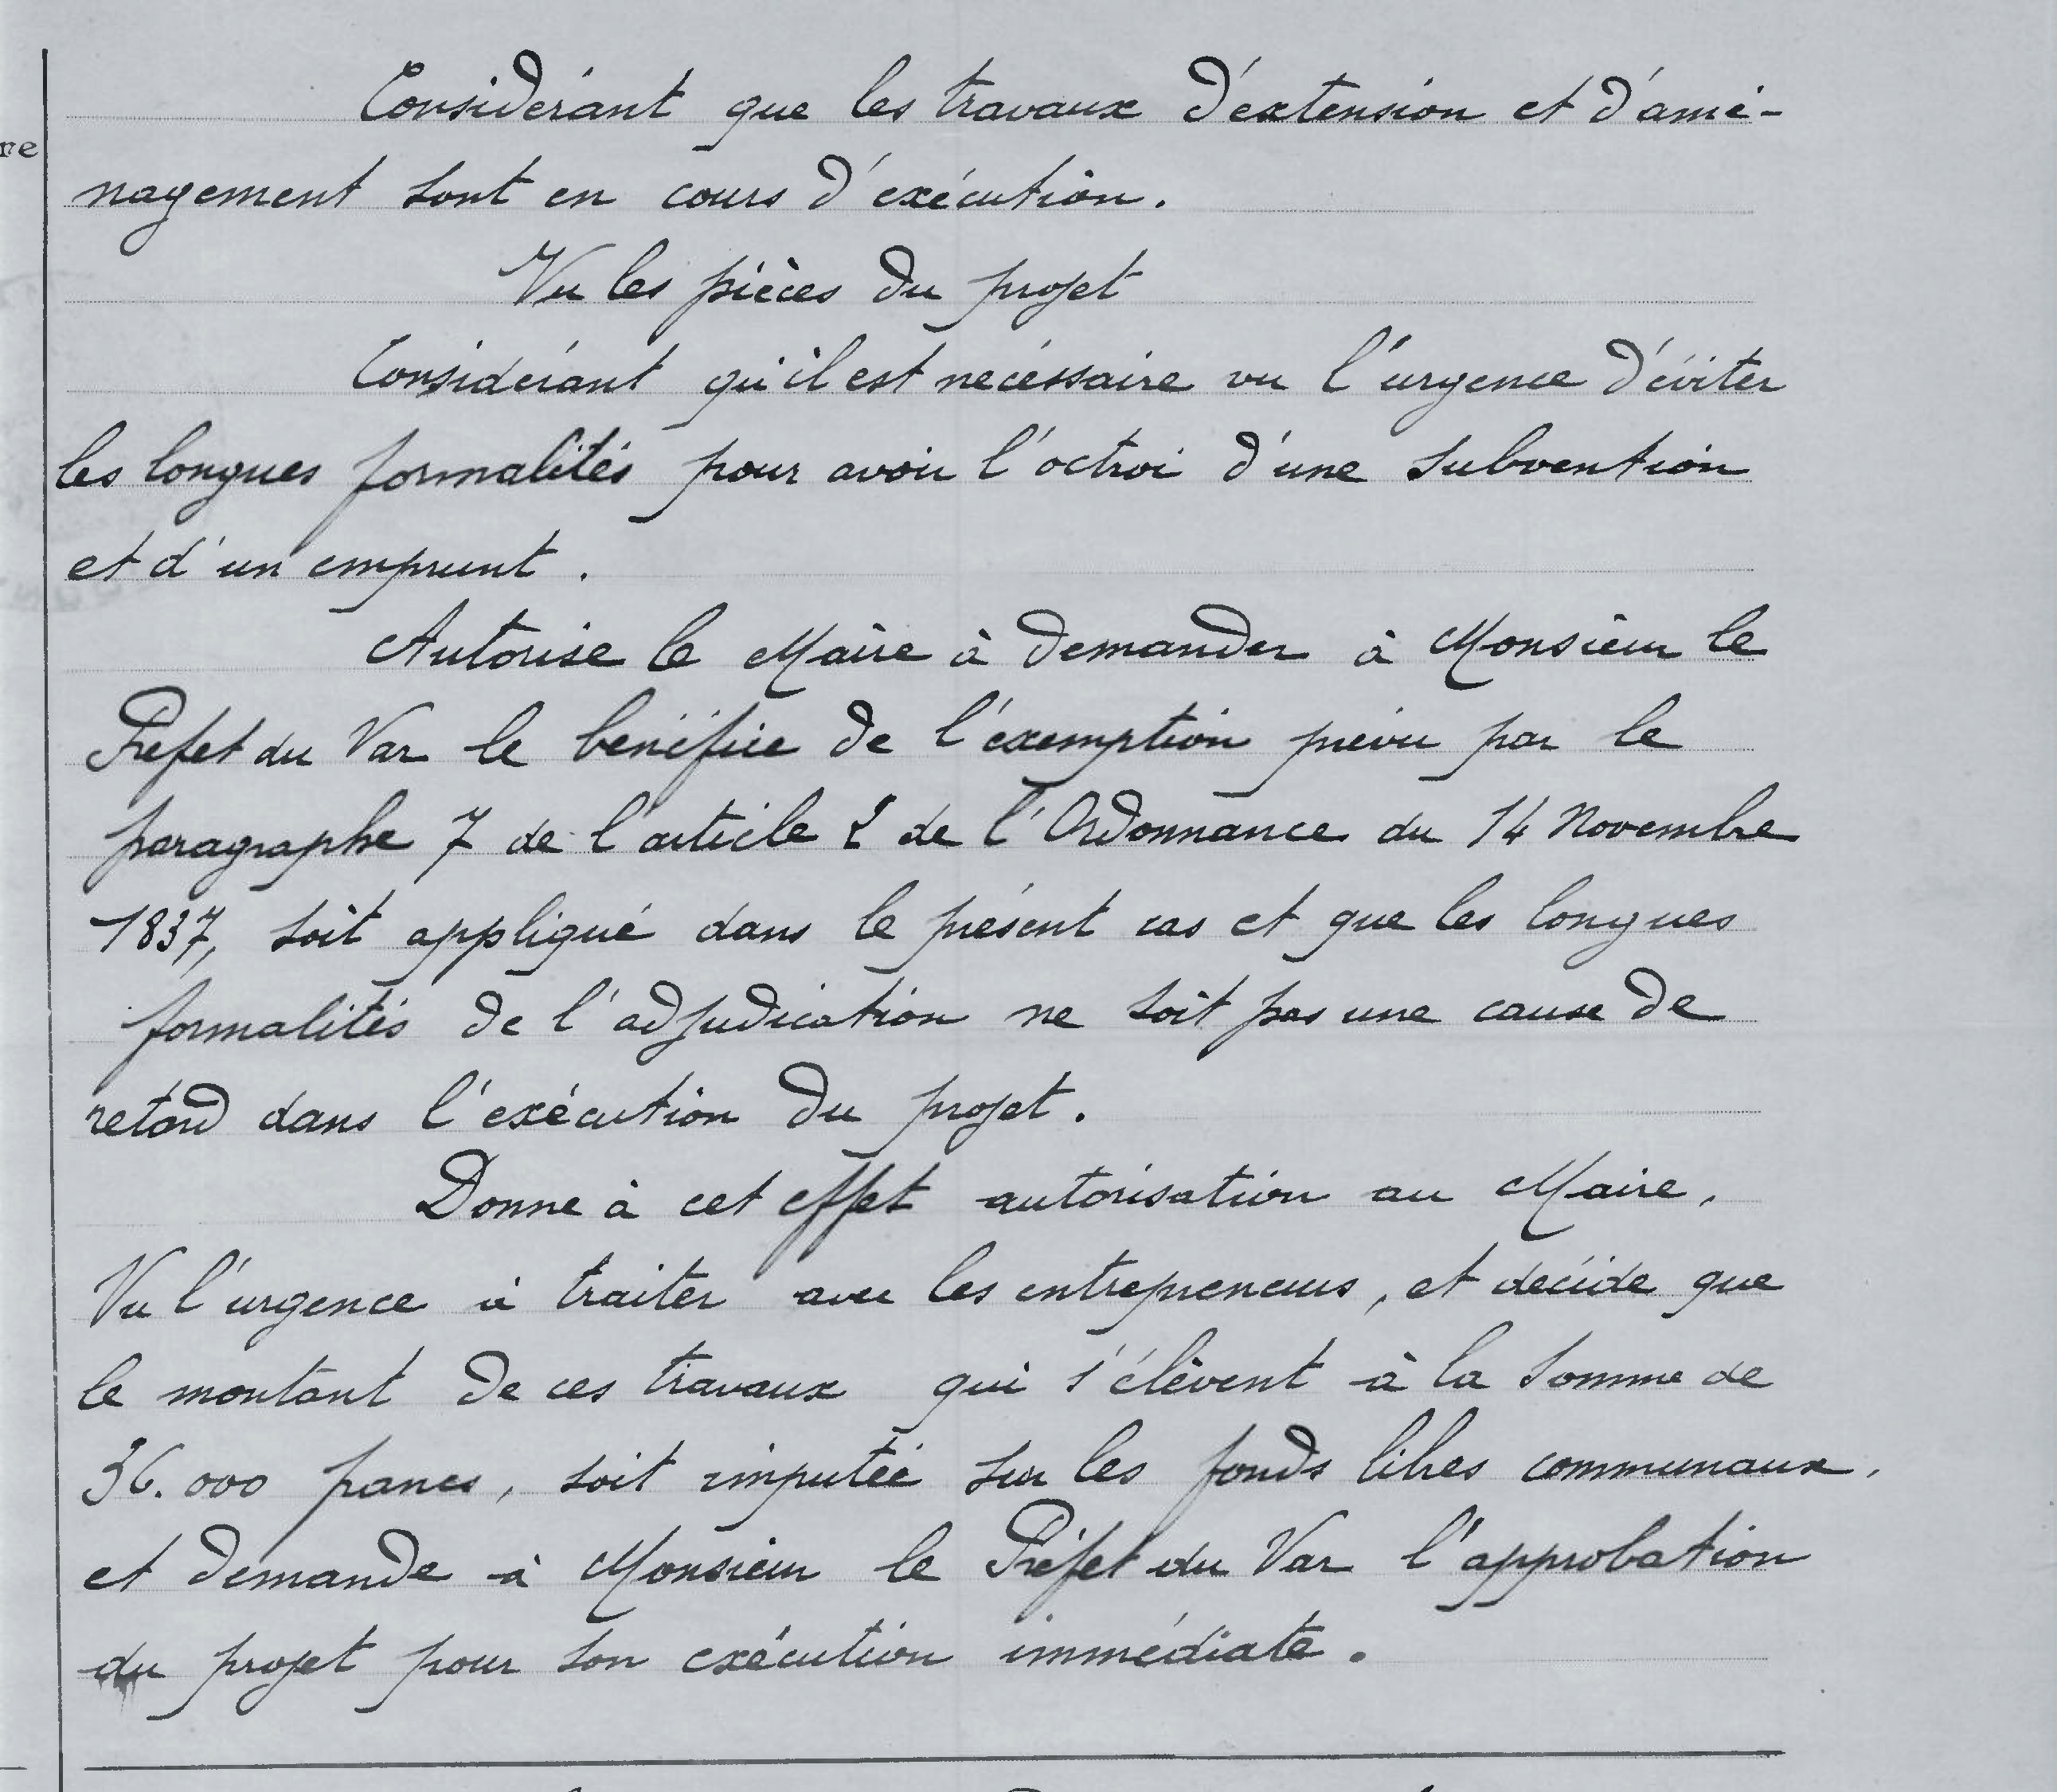 re
Considérant que les travaux d'extension et d'amé-
nagement sont en cours d'exécution.
Vu les pièces du projet
Considérant qu'il est nécessaire vu l'urgence d'éviter
les longues formalités pour avoir l'octroi d'une subvention
et d'un emprunt.
Autorise le Maire à demander à Monsieur le
Préfet du Var le bénéfice de l'exemption prévu par le
paragraphe 7 de l'article 2 de l'Ordonnance du 14 Novembre
1837, soit appliqué dans le présent cas et que les longues
formalités de l'adjudication ne soit pas une cause de
retard dans l'exécution du projet.
Donne à cet effet autorisation au Maire,
Vu l'urgence à traiter avec les entrepreneurs, et décide que
le montant de ces travaux qui s'élèvent à la somme de
36.000 francs, soit imputée sur les fonds libres communaux,
et demande à Monsieur le Préfet du Var l'approbation
du projet pour son exécution immédiate.